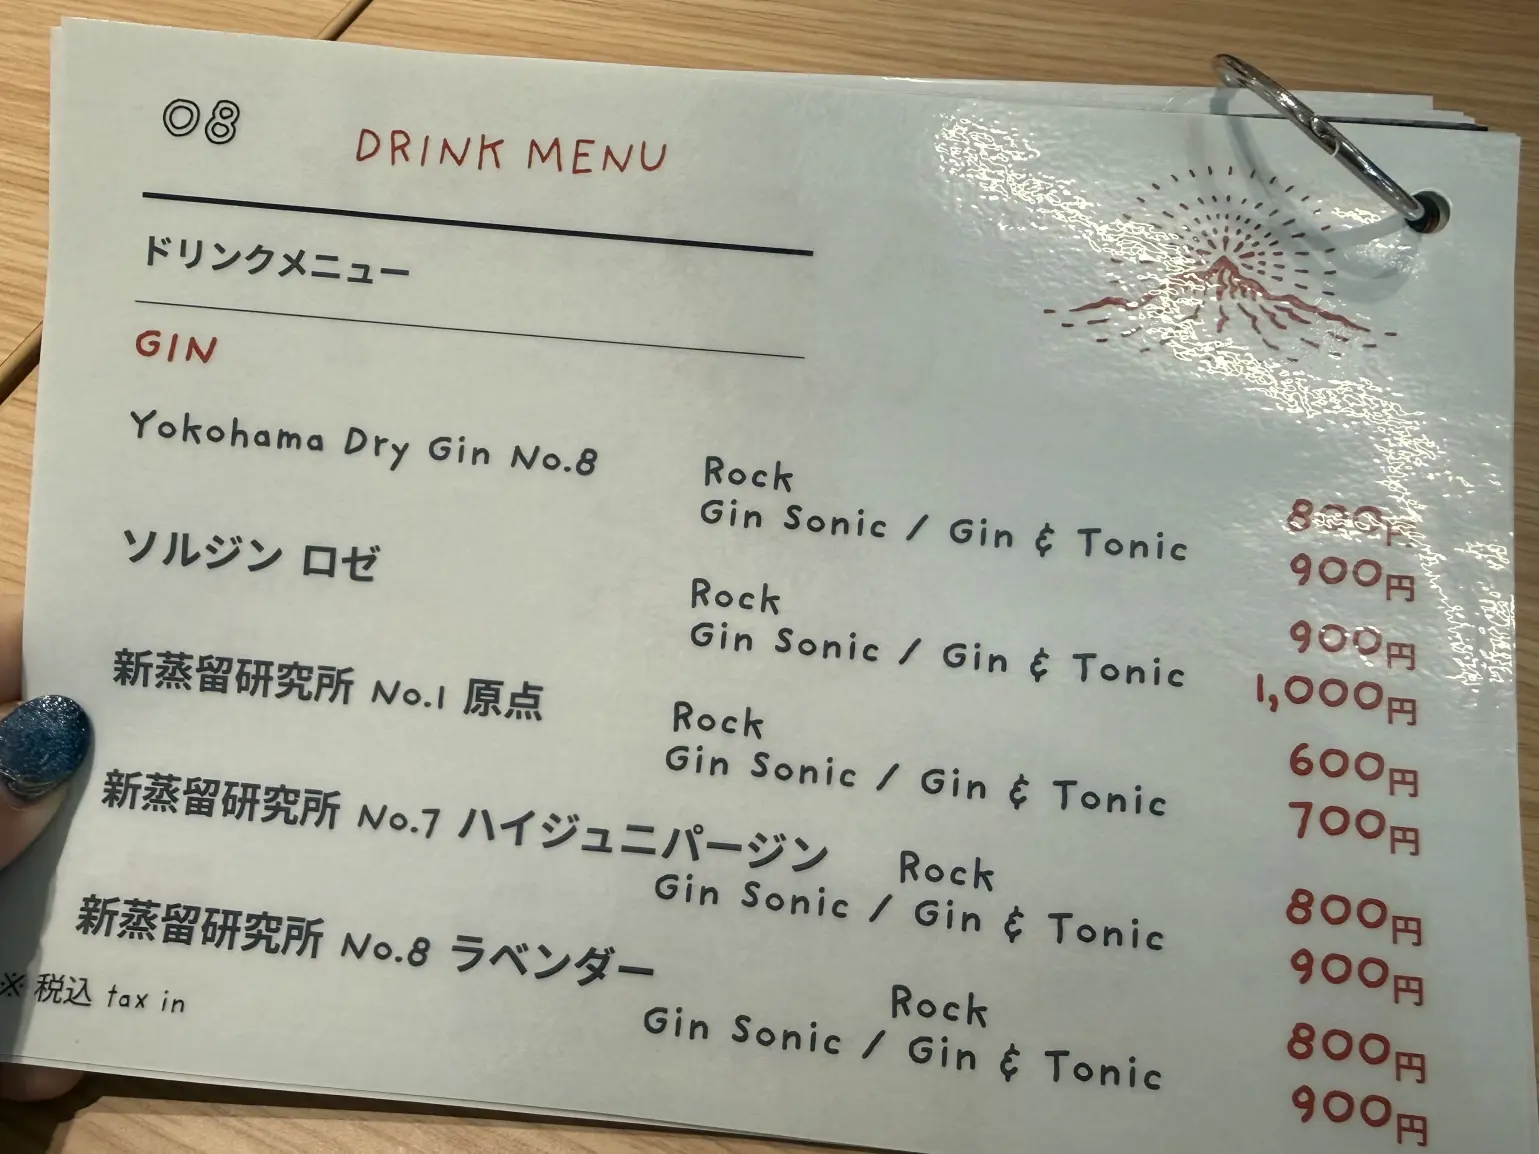 08
DRINK MENU
ドリンクメニュー
GIN
Yokohama Dry Gin No.8
Rock 800円
Gin Sonic / Gin & Tonic 900円
ソルジン ロゼ
Rock 900円
Gin Sonic / Gin & Tonic 1,000円
新蒸留研究所 No.1 原点
Rock 600円
Gin Sonic / Gin & Tonic 700円
新蒸留研究所 No.7 ハイジュニパージン
Rock 800円
Gin Sonic / Gin & Tonic 900円
新蒸留研究所 No.8 ラベンダー
Rock 800円
Gin Sonic / Gin & Tonic 900円
※ 税込 tax in